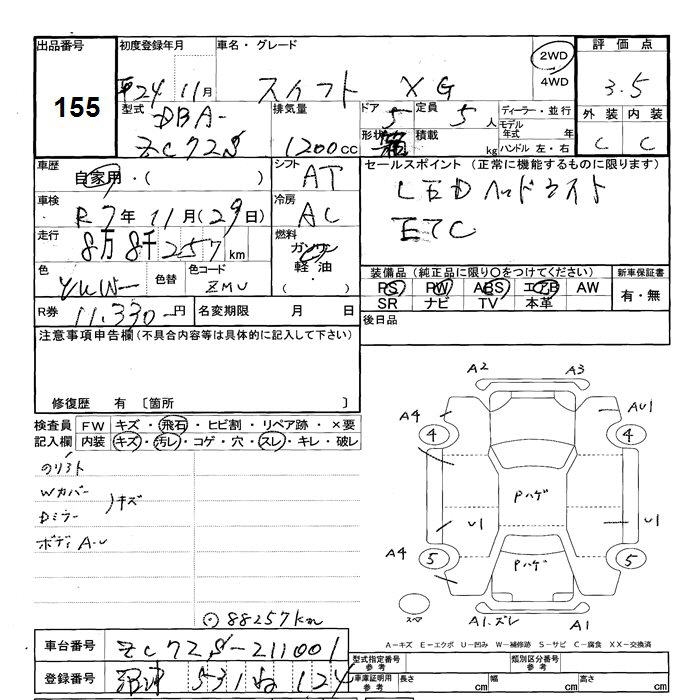 出品番号 初度登録年月 車名・グレード 2WD 4WD 評価点
155 平24年11月 スイフト XG 3.5
型式 DBA- ZC72S 排気量 1200cc ドア 5 形状 定員 5人 積載 kg ディーラー・並行 モデル年式 年 ハンドル 左・右 外装 内装
C C
車歴 自家用・( ) シフト AT セールスポイント (正常に機能するものに限ります)
LEDヘッドライト
ETC
車検 R7年11月(29日) 冷房 AC
走行 8万8千257km 燃料 ガソリン 軽油 ( )
色 色替 色コード ZMU
装備品 (純正品に限り○をつけてください) 新車保証書
PS PW ABS エアB AW 有・無
SR ナビ TV 本革
R券 11,330円 名変期限 月 日 後日品
注意事項申告欄(不具合内容等は具体的に記入して下さい)
修復歴 有 〔箇所 〕
検査員記入欄 FW キズ・飛石・ヒビ割・リペア跡・×要
内装 キズ・汚レ・コゲ・穴・スレ・キレ・破レ
Wカバー
Dミラー キズ
ボディA-U
A2 A3
A4 AU1
4 4
Pハゲ
U1 U1
A4 5 Pハゲ 5
スペア A1.ズレ A1
⊙88257km
A-キズ E-エクボ U-凹み W-補修跡 S-サビ C-腐食 XX-交換済
車台番号 ZC72S-211001
登録番号 沼津 531 ね 124
型式指定番号 参考 類別区分番号 参考
車庫証明用 参考 長さ cm 幅 cm 高さ cm